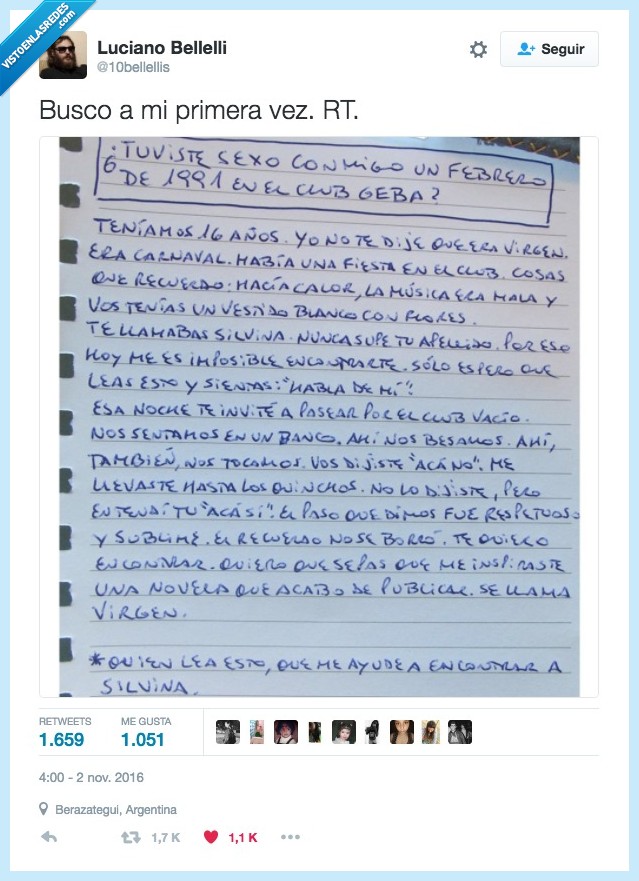 VISTOENLASREDES
.com
Luciano Bellelli
@10bellellis
Seguir
Busco a mi primera vez. RT.
¿TUVISTE SEXO CONMIGO UN FEBRERO
DE 1991 EN EL CLUB GEBA?
TENÍAMOS 16 AÑOS. YO NO TE DIJE QUE ERA VIRGEN.
ERA CARNAVAL. HABÍA UNA FIESTA EN EL CLUB. COSAS
QUE RECUERDO: HACÍA CALOR, LA MÚSICA ERA MALA Y
VOS TENÍAS UN VESTIDO BLANCO CON FLORES.
TE LLAMABAS SILVINA. NUNCA SUPE TU APELLIDO. POR ESO
HOY ME ES IMPOSIBLE ENCONTRARTE. SÓLO ESPERO QUE
LEAS ESTO Y SIENTAS: "HABLA DE MÍ".
ESA NOCHE TE INVITÉ A PASEAR POR EL CLUB VACÍO.
NOS SENTAMOS EN UN BANCO. AHÍ NOS BESAMOS. AHÍ,
TAMBIÉN, NOS TOCAMOS. VOS DIJISTE "ACÁ NO". ME
LLEVASTE HASTA LOS QUINCHOS. NO LO DIJISTE, PERO
ENTENDÍ TU "ACÁ SÍ". EL PASO QUE DIMOS FUE RESPETUOSO
Y SUBLIME. EL RECUERDO NO SE BORRÓ. TE QUIERO
ENCONTRAR. QUIERO QUE SEPAS QUE ME INSPIRASTE
UNA NOVELA QUE ACABO DE PUBLICAR. SE LLAMA
VIRGEN.
*QUIEN LEA ESTO, QUE ME AYUDE A ENCONTRAR A
SILVINA.
RETWEETS ME GUSTA
1.659 1.051
4:00 - 2 nov. 2016
Berazategui, Argentina
1,7 K 1,1 K